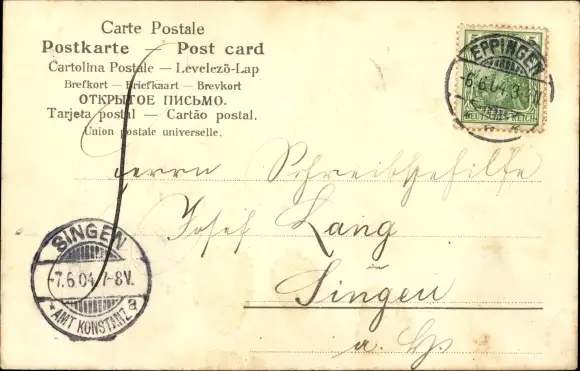 Carte Postale
Postkarte — Post card
Cartolina Postale — Levelező-Lap
Brefkort — Briefkaart — Brevkort
ОТКРЫТОЕ ПИСЬМО.
Tarjeta postal — Cartão postal.
Union postale universelle.
EPPINGEN
6.6.04.3
DEUTSCHES REICH
Herrn Schreibgehilfe
Josef Lang
Singen
a. H.
SINGEN
-7.6.04.7-8V.
* AMT KONSTANZ a